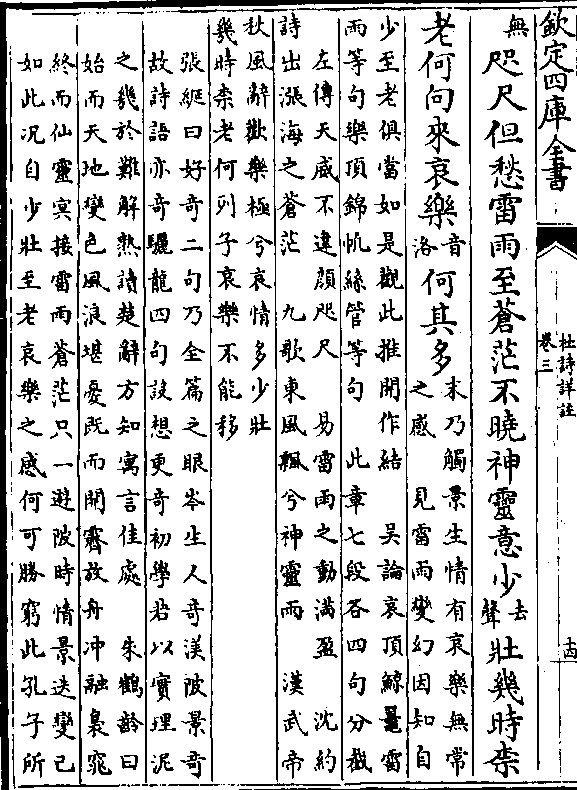 欽定四庫全書
杜詩詳註
卷三
十四
無咫尺但愁雷雨至蒼茫不曉神靈意少去聲壯幾時柰
老何向來哀樂音洛何其多
末乃觸景生情有哀樂無常
之感 見雷雨變幻因知自
少至老俱當如是觀此推開作結 吳論哀頂鯨鼉雷
雨等句樂頂錦帆絲管等句 此章七段各四句分截
左傳天威不違顔咫尺 易雷雨之動滿盈 沈約
詩出漲海之蒼茫 九歌東風飄兮神靈雨 漢武帝
秋風辭歡樂極兮哀情多少壯
幾時柰老何列子哀樂不能移
張綖曰好奇二句乃全篇之眼岑生人奇渼陂景奇
故詩語亦奇驪龍四句設想更奇初學若以實理泥
之幾於難解熟讀楚辭方知寓言佳處 朱鶴齡曰
始而天地變色風浪堪憂既而開霽放舟冲融裊窕
終而仙靈冥接雷雨蒼茫只一遊陂時情景迭變已
如此况自少壯至老哀樂之感何可勝窮此孔子所